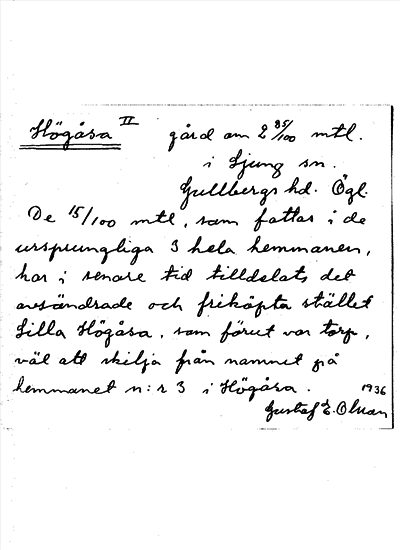 Högåsa II gård om 2 85/100 mtl.
i Ljung sn.
Gullbergs hd. Ögl.
De 15/100 mtl, som fattas i de
ursprungliga 3 hela hemmanen,
har i senare tid tilldelats det
avsöndrade och friköpta stället
Lilla Högåsa, som förut var torp,
väl att skilja från namnet på
hemmanet n:r 3 i Högåsa.
1936
Gustaf E. Olsson